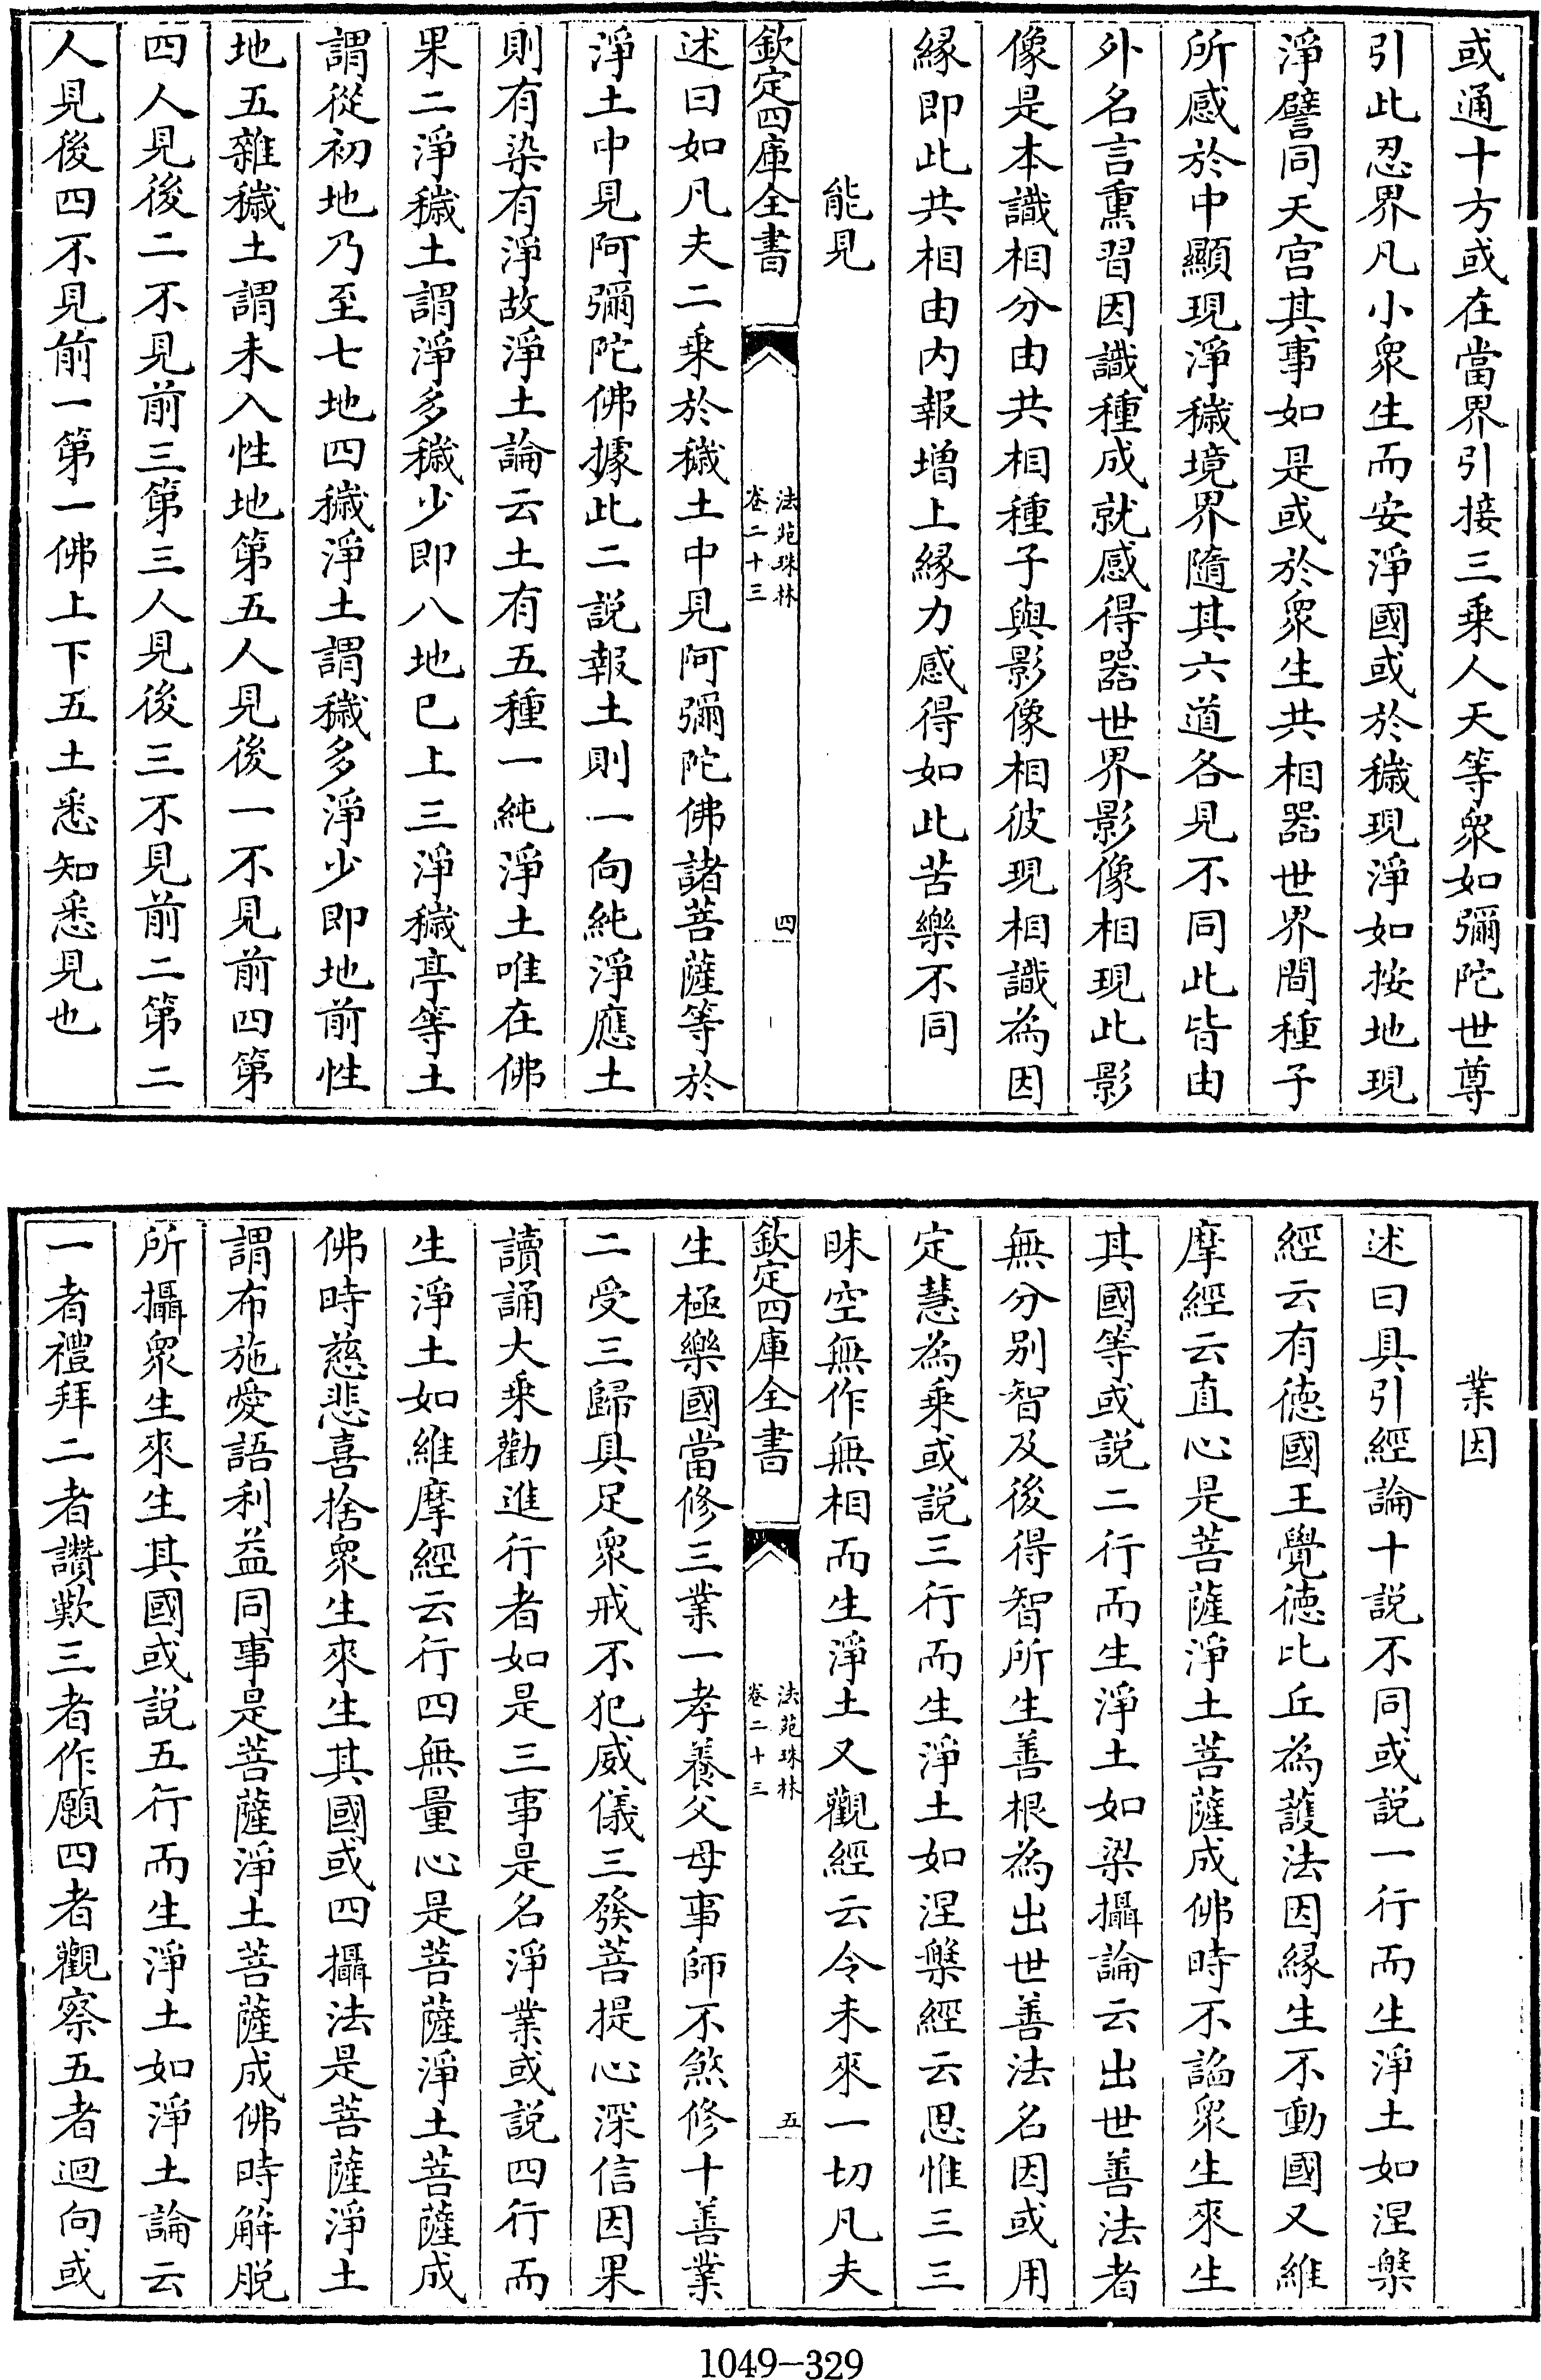 或通十方或在當界引接三乗人天等衆如彌陀世尊
引此忍界凡小衆生而安淨國或於穢現淨如按地現
淨譬同天宫其事如是或於衆生共相器世界間種子
所感於中顯現淨穢境界隨其六道各見不同此皆由
外名言熏習因識種成就感得器世界影像相現此影
像是本識相分由共相種子與影像相彼現相識為因
緣即此共相由内報増上緣力感得如此苦樂不同
能見
欽定四庫全書
法苑珠林
卷二十三
四
述曰如凡夫二乗於穢土中見阿彌陀佛諸菩薩等於
淨土中見阿彌陀佛據此二説報土則一向純淨應土
則有染有淨故淨土論云土有五種一純淨土唯在佛
果二淨穢土謂淨多穢少即八地已上三淨穢亭等土
謂從初地乃至七地四穢淨土謂穢多淨少即地前性
地五雜穢土謂未入性地第五人見後一不見前四第
四人見後二不見前三第三人見後三不見前二第二
人見後四不見前一第一佛上下五土悉知悉見也
業因
述曰具引經論十説不同或説一行而生淨土如涅槃
經云有徳國王覺徳比丘為護法因緣生不動國又維
摩經云直心是菩薩淨土菩薩成佛時不諂衆生來生
其國等或説二行而生淨土如梁攝論云出世善法者
無分别智及後得智所生善根為出世善法名因或用
定慧為乗或説三行而生淨土如涅槃經云思惟三三
昧空無作無相而生淨土又觀經云令未來一切凡夫
欽定四庫全書
法苑珠林
卷二十三
五
生極樂國當修三業一孝養父母事師不煞修十善業
二受三歸具足衆戒不犯威儀三發菩提心深信因果
讀誦大乗勸進行者如是三事是名淨業或説四行而
生淨土如維摩經云行四無量心是菩薩淨土菩薩成
佛時慈悲喜捨衆生來生其國或四攝法是菩薩淨土
謂布施愛語利益同事是菩薩淨土菩薩成佛時解脱
所攝衆生來生其國或説五行而生淨土如淨土論云
一者禮拜二者讚歎三者作願四者觀察五者迴向或
1049-329